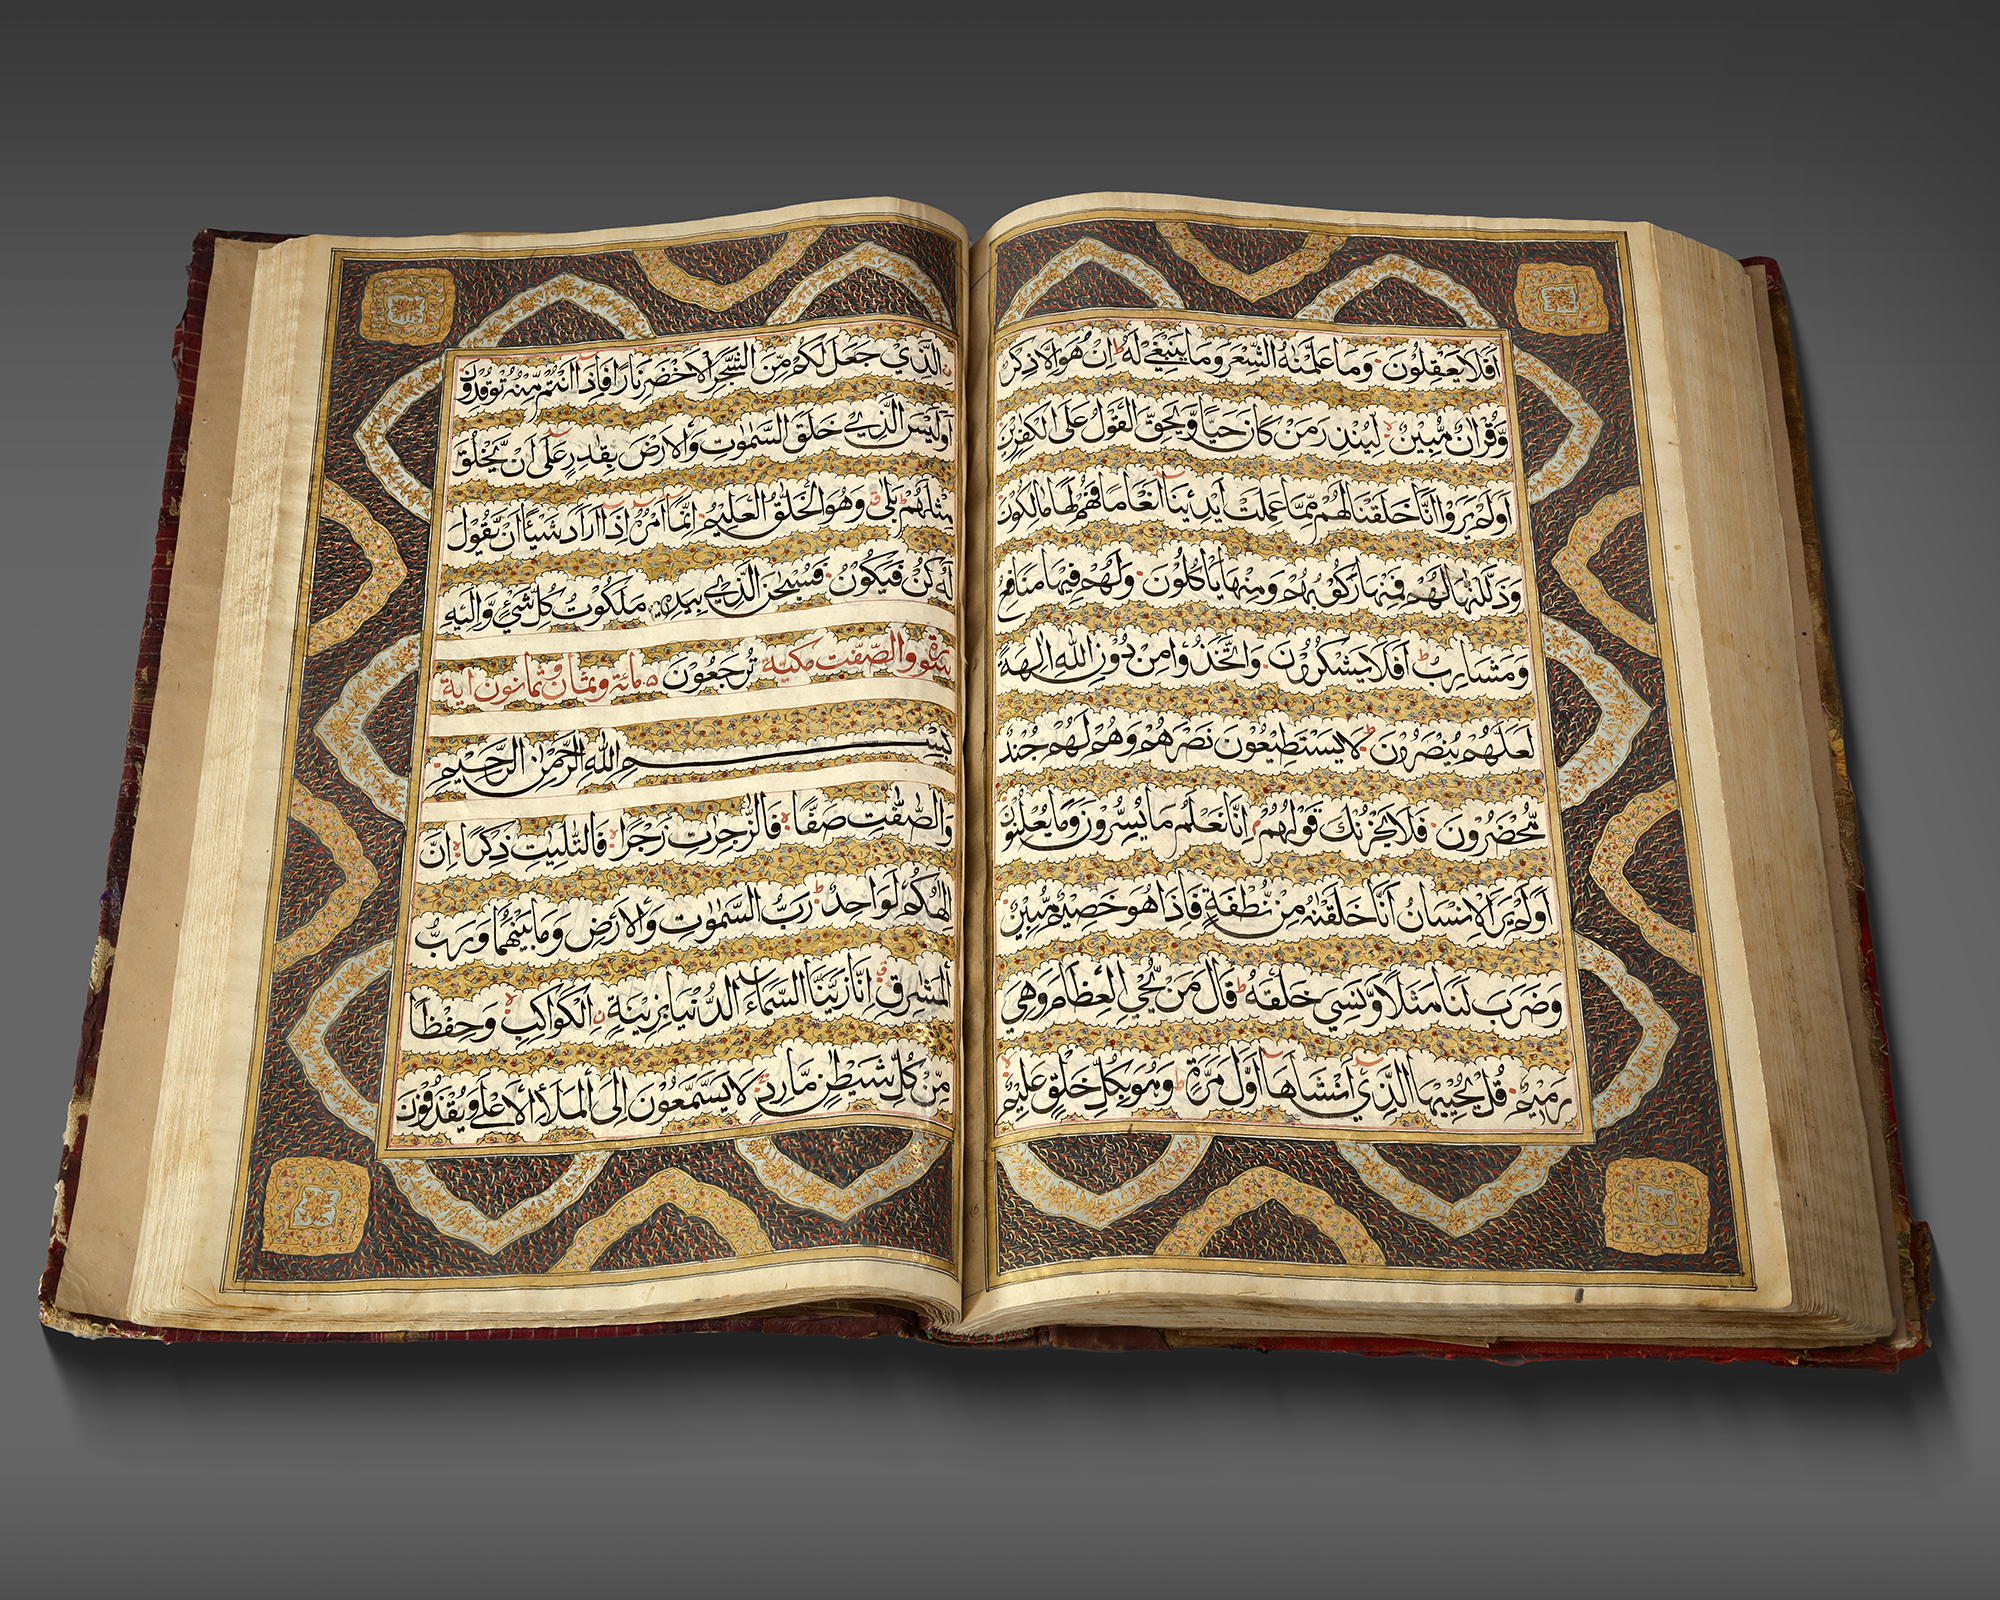 اَفَلَا يَعْقِلُوْنَ وَمَا عَلَّمْنٰهُ الشِّعْرَ وَمَا يَنْبَغِيْ لَهٗ ط اِنْ هُوَ اِلَّا ذِكْرٌ
وَّقُرْاٰنٌ مُّبِيْنٌ لا لِّيُنْذِرَ مَنْ كَانَ حَيًّا وَّيَحِقَّ الْقَوْلُ عَلَى الْكٰفِرِيْنَ
اَوَلَمْ يَرَوْا اَنَّا خَلَقْنَا لَهُمْ مِّمَّا عَمِلَتْ اَيْدِيْنَا اَنْعَامًا فَهُمْ لَهَا مَالِكُوْنَ
وَذَلَّلْنٰهَا لَهُمْ فَمِنْهَا رَكُوْبُهُمْ وَمِنْهَا يَاْكُلُوْنَ وَلَهُمْ فِيْهَا مَنَافِعُ
وَمَشَارِبُ ط اَفَلَا يَشْكُرُوْنَ وَاتَّخَذُوْا مِنْ دُوْنِ اللّٰهِ اٰلِهَةً
لَّعَلَّهُمْ يُنْصَرُوْنَ ط لَا يَسْتَطِيْعُوْنَ نَصْرَهُمْ وَهُمْ لَهُمْ جُنْدٌ
مُّحْضَرُوْنَ فَلَا يَحْزُنْكَ قَوْلُهُمْ م اِنَّا نَعْلَمُ مَا يُسِرُّوْنَ وَمَا يُعْلِنُوْنَ
اَوَلَمْ يَرَ الْاِنْسَانُ اَنَّا خَلَقْنٰهُ مِنْ نُّطْفَةٍ فَاِذَا هُوَ خَصِيْمٌ مُّبِيْنٌ
وَضَرَبَ لَنَا مَثَلًا وَّنَسِيَ خَلْقَهٗ ط قَالَ مَنْ يُّحْيِ الْعِظَامَ وَهِيَ
رَمِيْمٌ قُلْ يُحْيِيْهَا الَّذِيْ اَنْشَاَهَا اَوَّلَ مَرَّةٍ ط وَهُوَ بِكُلِّ خَلْقٍ عَلِيْمٌ لا
نِ الَّذِيْ جَعَلَ لَكُمْ مِّنَ الشَّجَرِ الْاَخْضَرِ نَارًا فَاِذَا اَنْتُمْ مِّنْهُ تُوْقِدُوْنَ
اَوَلَيْسَ الَّذِيْ خَلَقَ السَّمٰوٰتِ وَالْاَرْضَ بِقٰدِرٍ عَلٰى اَنْ يَّخْلُقَ
مِثْلَهُمْ ط بَلٰى ق وَهُوَ الْخَلّٰقُ الْعَلِيْمُ اِنَّمَا اَمْرُهٗ اِذَا اَرَادَ شَيْئًا اَنْ يَّقُوْلَ
لَهٗ كُنْ فَيَكُوْنُ فَسُبْحٰنَ الَّذِيْ بِيَدِهٖ مَلَكُوْتُ كُلِّ شَيْءٍ وَّاِلَيْهِ
سورة والصّٰفّٰت مكية تُرْجَعُوْنَ مائة وثمان وثمانون اية
بِسْمِ اللّٰهِ الرَّحْمٰنِ الرَّحِيْمِ
وَالصّٰفّٰتِ صَفًّا لا فَالزّٰجِرٰتِ زَجْرًا لا فَالتّٰلِيٰتِ ذِكْرًا لا اِنَّ
اِلٰهَكُمْ لَوَاحِدٌ ط رَبُّ السَّمٰوٰتِ وَالْاَرْضِ وَمَا بَيْنَهُمَا وَرَبُّ
الْمَشٰرِقِ اِنَّا زَيَّنَّا السَّمَاءَ الدُّنْيَا بِزِيْنَةِ نِ الْكَوَاكِبِ لا وَحِفْظًا
مِّنْ كُلِّ شَيْطٰنٍ مَّارِدٍ لَا يَسَّمَّعُوْنَ اِلَى الْمَلَاِ الْاَعْلٰى وَيُقْذَفُوْنَ